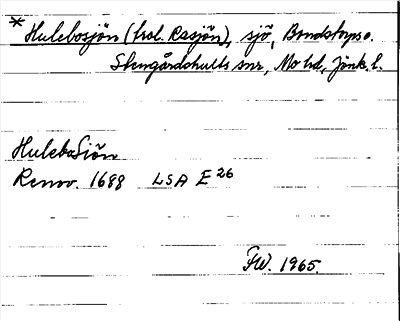 *Hulebosjön (trol. Rasjön), sjö, Bondstorps o.
Stengårdshults snr, Mo hd, Jönk. l.
HulebaSiön
Renov. 1688 LSA E 26
FW. 1965.